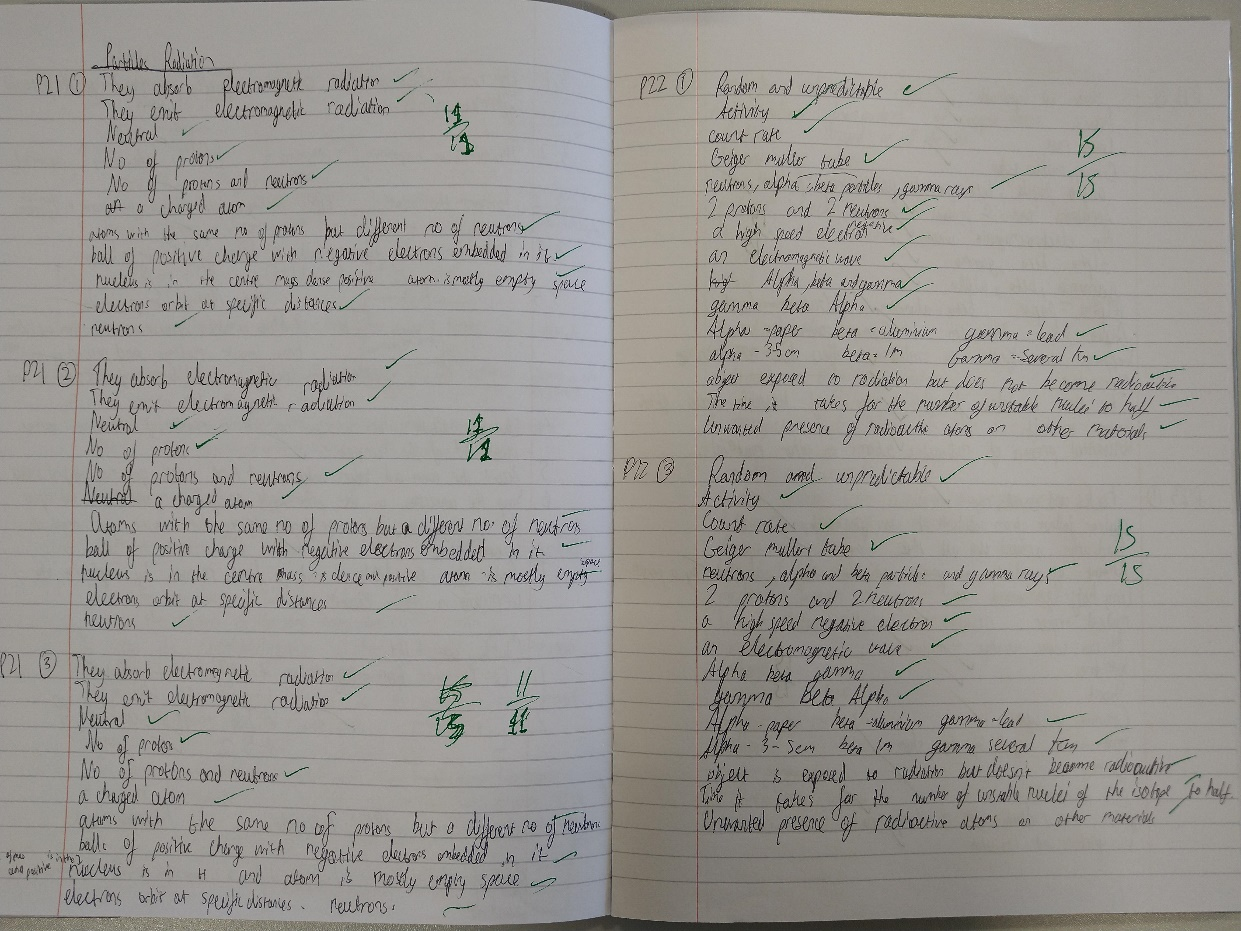 Particles Radiation
P21 ① They absorb electromagnetic radiation
They emit electromagnetic radiation
Neutral
No of protons
No of protons and neutrons
a charged atom
atoms with the same no of protons but different no of neutrons
ball of positive charge with negative electrons embedded in it
nucleus is in the centre mass dense positive atom is mostly empty space
electrons orbit at specific distances
neutrons
P21 ② They absorb electromagnetic radiation
They emit electromagnetic radiation
Neutral
No of protons
No of protons and neutrons
Neutral a charged atom
Atoms with the same no of protons but a different no. of neutrons
ball of positive charge with negative electrons embedded in it
nucleus is in the centre mass is dence and positive atom is mostly empty space
electrons orbit at specific distances
neutrons
P21 ③ They absorb electromagnetic radiation
They emit electromagnetic radiation
11
11
Neutral
No of protons
No of protons and neutrons
a charged atom
atoms with the same no of protons but a different no of neutrons
ball of positive charge with negative electrons embedded in it
nucleus is in and atom is mostly empty space
electrons orbit at specific distances. neutrons.
P22 ① Random and unpredictable
Activity
count rate
15
15
Geiger muller tube
neutrons, alpha beta particles, gamma rays
2 protons and 2 neutrons
a high speed negative electron
an electromagnetic wave
Alpha, beta and gamma
gamma beta Alpha
Alpha = paper beta = aluminium gamma = lead
alpha - 3-5cm beta = 1m Gamma = several km
object exposed to radiation but does not become radioactive
The time it takes for the number of unstable nuclei to half
Unwanted presence of radioactive atoms on other materials
P22 ③ Random and unpredictable
Activity
Count rate
15
15
Geiger muller tube
neutrons, alpha and beta particles and gamma rays
2 protons and 2 neutrons
a high speed negative electron
an electromagnetic wave
Alpha beta gamma
Gamma Beta Alpha
Alpha - paper beta - aluminium gamma - lead
Alpha - 3-5cm beta 1m gamma several km
object is exposed to radiation but doesn't become radioactive
Time it takes for the number of unstable nuclei of the isotope to half
Unwanted presence of radioactive atoms on other materials